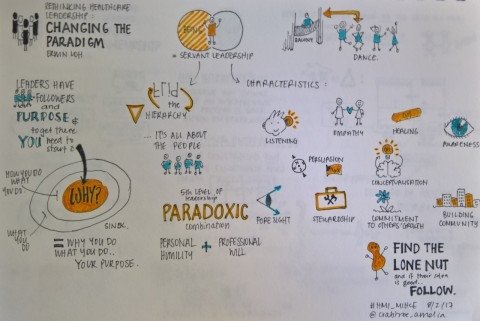 RETHINKING HEALTHCARE
LEADERSHIP:
CHANGING THE
PARADIGM
ERWIN LOH
BEING
= SERVANT LEADERSHIP
BALCONY
DANCE.
LEADERS HAVE
FOLLOWERS
and
PURPOSE &
to get there
YOU need to
start @
WHY?
HOW YOU DO
WHAT
YOU DO
WHAT
YOU
DO
SINEK.
= WHY YOU DO
WHAT YOU DO..
YOUR PURPOSE.
FLIP
the
HIERARCHY
... IT'S ALL ABOUT
THE PEOPLE
5th LEVEL of
leadership
PARADOXIC
combination
PERSONAL
HUMILITY
+
PROFESSIONAL
WILL
CHARACTERISTICS:
LISTENING
EMPATHY
HEALING
AWARENESS
PERSUASION
CONCEPTUALISATION
FORESIGHT
STEWARDSHIP
COMMITMENT
TO OTHERS' GROWTH
BUILDING
COMMUNITY
FIND THE
LONE NUT
and if their idea
is good...
FOLLOW.
8/2/17